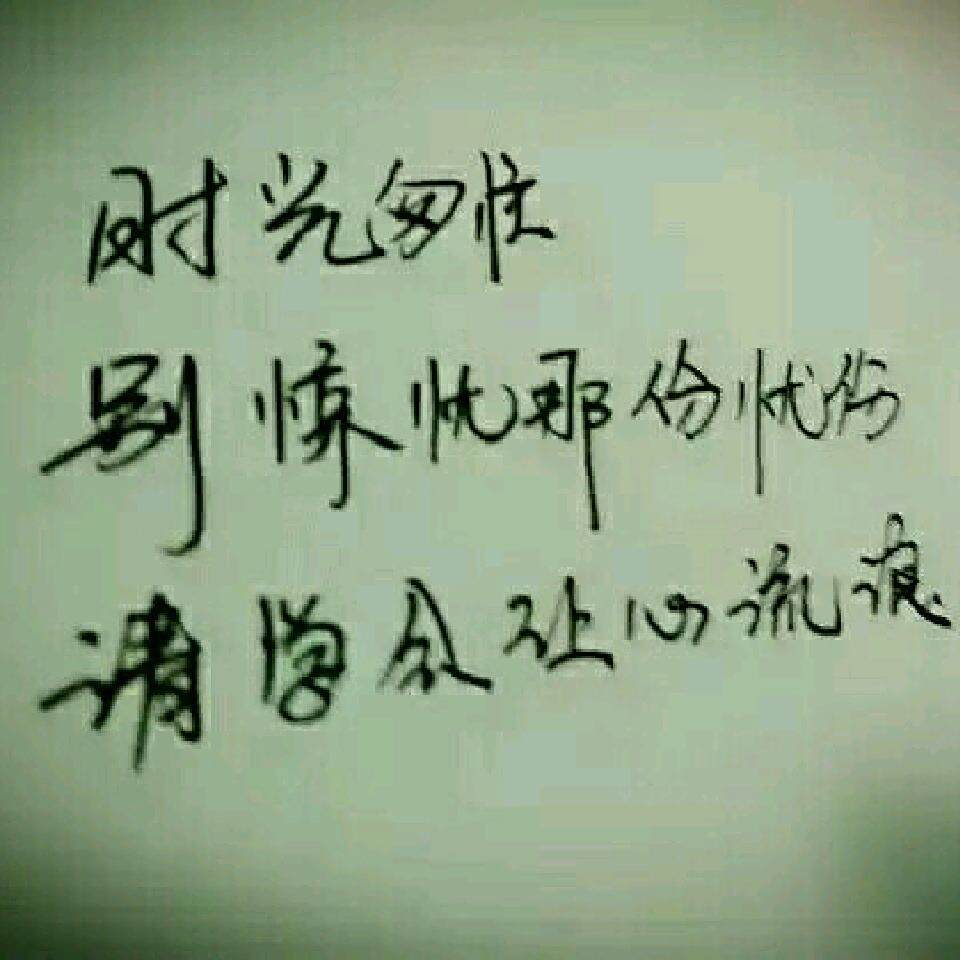 时光匆忙
别惊忧那份忧伤
请学会让心流浪